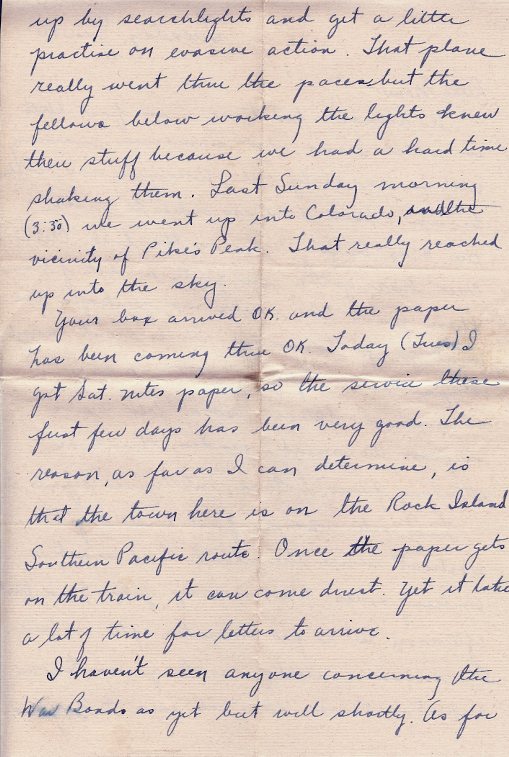 up by searchlights and get a little
practise on evasive action. That plane
really went thru the paces but the
fellows below working the lights knew
their stuff because we had a hard time
shaking them. Last Sunday morning
(3:30) we went up into Colorado, and the
vicinity of Pike's Peak. That really reached
up into the sky.
Your box arrived OK. and the paper
has been coming thru OK. Today (Tues) I
got Sat. nites paper, so the service these
first few days has been very good. The
reason, as far as I can determine, is
that the town here is on the Rock Island
Southern Pacific route. Once the paper gets
on the train, it can come direct. Yet it takes
a lot of time for letters to arrive.
I haven't seen anyone concerning the
War Bonds as yet but will shortly. As for